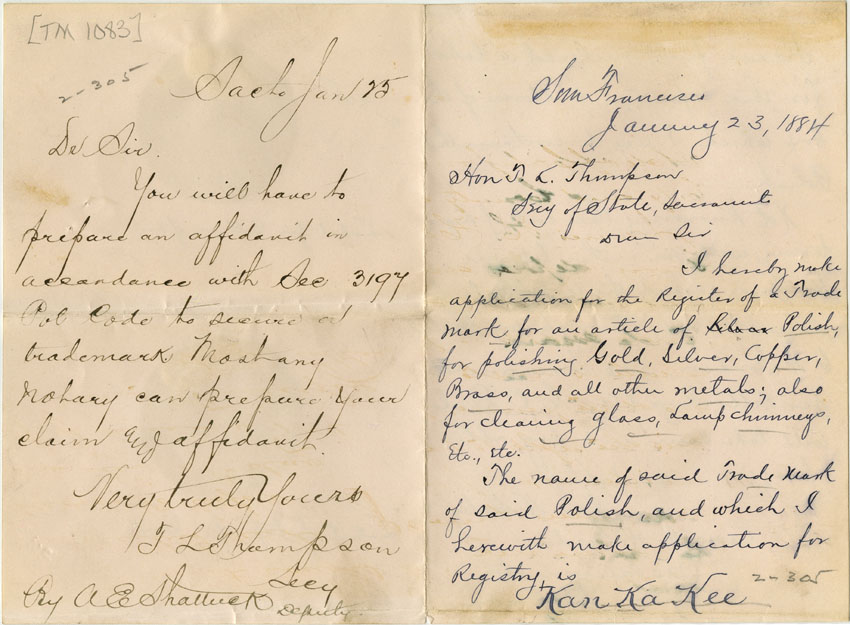 [TM 1083]
2-305
Sacto Jan 25
De Sir.
You will have to
prepare an affidavit in
accordance with Sec 3197
Pol Code to secure a
trademark Most any
Notary can prepare your
claim & affidavit.
Very truly Yours
T L Thompson
Secy
By A E Shattuck Deputy.
San Francisco
January 23, 1884
Hon T. L. Thompson
Secy of State, Sacramento
Dear Sir
I hereby make
application for the Register of a Trade
Mark for an article of Silver Polish,
for polishing Gold, Silver, Copper,
Brass, and all other metals; also
for cleaning glass, Lamp chimneys,
Etc., etc.
The name of said Trade Mark
of said Polish, and which I
herewith make application for
Registry, is
Kan Ka Kee
2-305